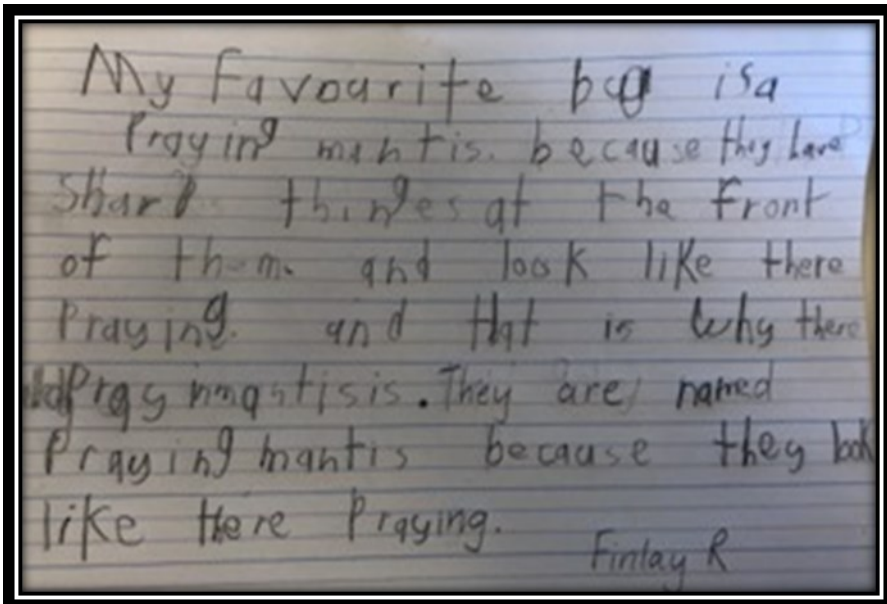 My favourite bug is a
Praying mantis. because they have
Sharp thinges at the front
of them. and look like there
Praying. and that is why there
Prayinmantisis. They are named
Praying mantis because they look
like there Praying.
Finlay R